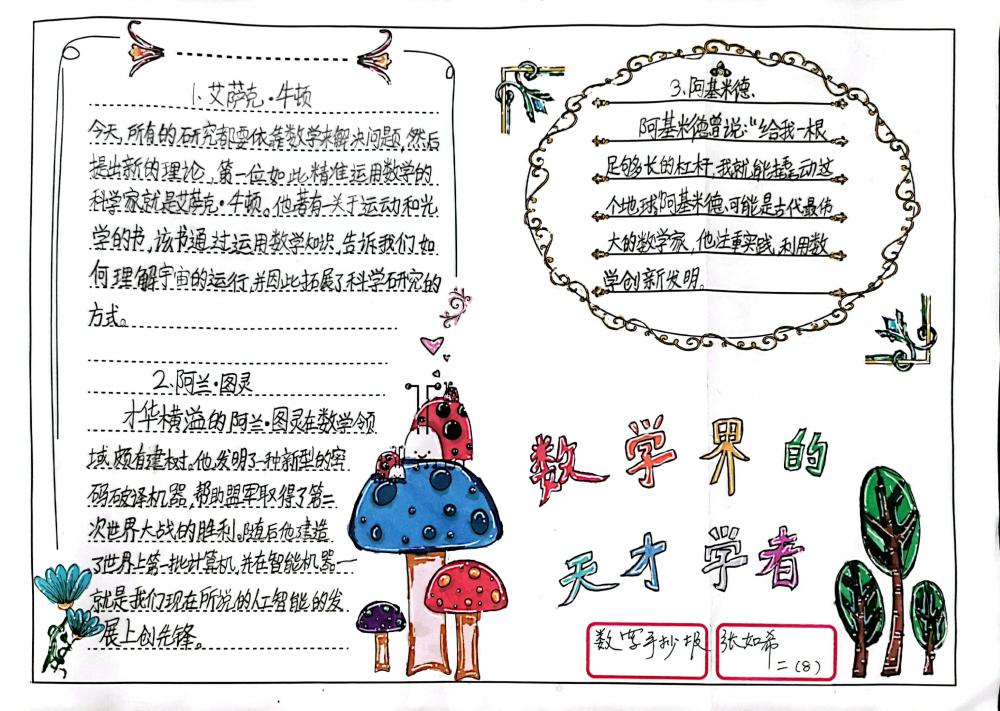 1、艾萨克·牛顿
今天，所有的研究都要依靠数学来解决问题，然后
提出新的理论。第一位如此精准运用数学的
科学家就是艾萨克·牛顿。他著有一关于运动和光
学的书，该书通过运用数学知识，告诉我们如
何理解宇宙的运行，并因此拓展了科学研究的
方式。
2、阿兰·图灵
才华横溢的阿兰·图灵在数学领
域颇有建树。他发明了一种新型的密
码破译机器，帮助盟军取得了第二
次世界大战的胜利。随后他建造
了世界上第一批计算机，并在智能机器一
就是我们现在所说的人工智能的发
展上创先锋。
3、阿基米德、
阿基米德曾说：“给我一根
足够多长的杠杆，我就能撬动这
个地球”阿基米德、可能是古代最伟
大的数学家，他注重实践，利用数
学创新发明。
数学界的
天才学者
数学手抄报 张如希
二（8）